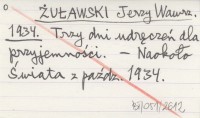 ŻUŁAWSKI Jerzy Wawrz.
1934. Trzy dni udręczeń dla
przyjemności. – Naokoło
Świata z paźdz. 1934.